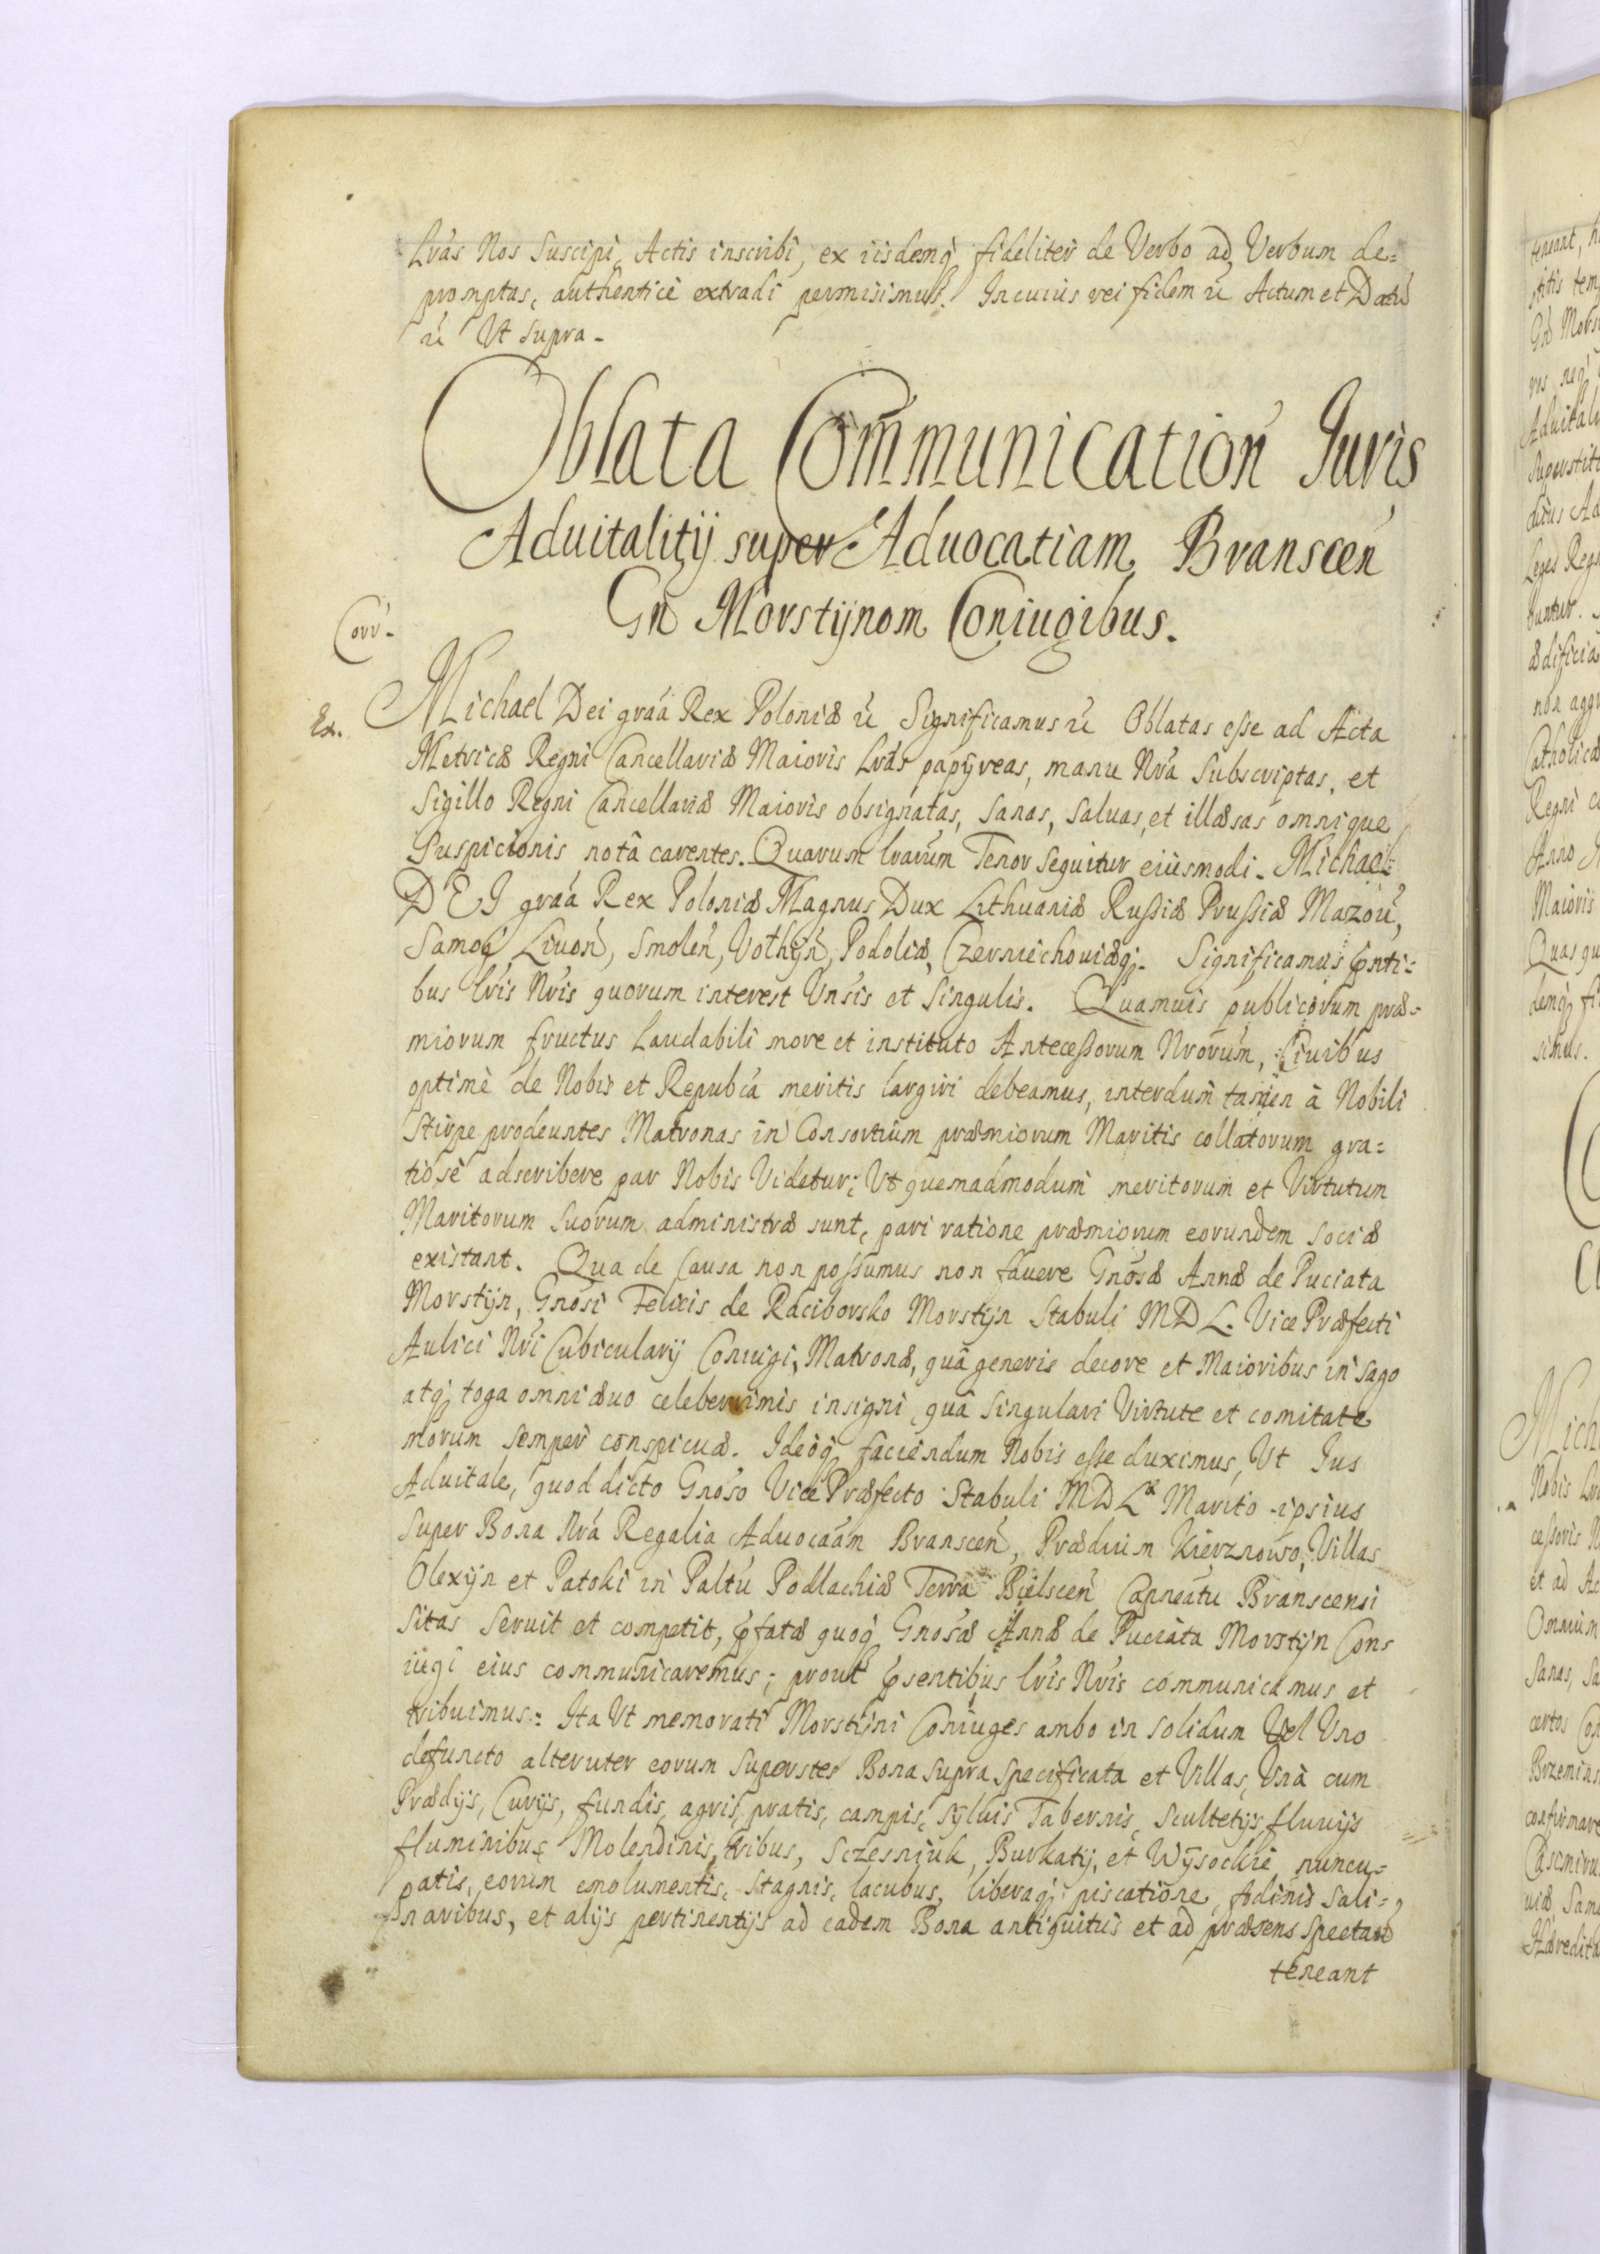 Lrãs Nos Suscipi, Actis inscribi, ex iisdemq; fideliter de Verbo ad Verbum de=
promptas, authenticè extradi permisimus. In cuius rei fidem ac Actum et Datũ
ac Ut supra.
Oblata Com̃municatioñ Iuris
Aduitalitij super Aduocatiam Bransceñ
Gñ Morstijnom Coniugibus.
Corr.
Ex.
Michael Dei grãa Rex Poloniæ ac Significamus ac Oblatas esse ad Acta
Metricæ Regni Cancellariæ Maioris Lrãs papÿreas, manu Nrã Subscriptas, et
Sigillo Regni Cancellariæ Maioris obsignatas, sanas, saluas, et illæsas omnique
Suspicionis notâ carentes. Quarum lrarum Tenor Sequitur eiusmodi. Michael
DEI grãa Rex Poloniæ Magnus Dux Lithuaniæ Russiæ Prussiæ Mazoũ,
Samog Liuoñ, Smoleñ, Volhÿñ, Podoliæ, Czerniechouiæq;. Significamus pñti=
bus lris Nris quorum interest Vnsis et Singulis. Quamuis publicorum præ=
miorum fructus Laudabili more et instituto Antecessorum Nrorum, Ciuibus
optimè de Nobis et Republ̃ca meritis largiri debeamus, interdum tamen à Nobili
Stirpe prodeuntes Matronas in Consortium præmiorum Maritis collatorum gra=
tiosè adscribere par Nobis Videtur; Vt quemadmodum meritorum et Virtutum
Maritorum Suorum administræ sunt, pari ratione præmiorum eorundem sociæ
existant. Qua de causa non possumus non fauere Gnõsæ Annæ de Puciata
Morstÿn, Gnõsi Felicis de Raciborsko Morstÿn Stabuli MDL. Vice Præfecti
Aulici Nri Cubicularij Coniugi, Matronæ, quâ generis decore et Maioribus in sago
atq; toga omni æuo celeberrimis insigni, quâ singulari Virtute et comitate
morum semper conspicuæ. Ideòq; faciendum Nobis esse duximus, Vt Ius
Aduitale, quod dicto Gnõso Vice Præfecto Stabuli MDL Marito ipsius
super Bona Nrã Regalia Aduocãam Branscen, Prædium Kierznowo, Villas
Olexÿn et Patoki in Palt̃u Podlachiæ Terra Bielsceñ Capneãtu Branscensi
sitas seruit et competit, pfatæ quoq; Gnosæ Annæ de Puciata Morstÿn Con=
iugi eius communicaremus; prout psentibus lris Nris communicamus et
tribuimus: Ita Vt memorati Morstÿni Coniuges ambo in solidum Vel Vno
defuncto alteruter eorum superstes Bona supra specificata et Villas, Vnà cum
Prædijs, Curijs, fundis, agris, pratis, campis, sÿluis Tabernis, Scultetijs, fluuijs
fluminibus, Molendinis tribus, Sczesniuk, Burkaty, et Wÿsockie nuncu=
patis, eorum emolumentis, stagnis, lacubus, liberaq; piscatione, fodinis sali=
naribus, et alijs pertinentijs ad eadem Bona antiquitus et ad præsens spectant
teneant